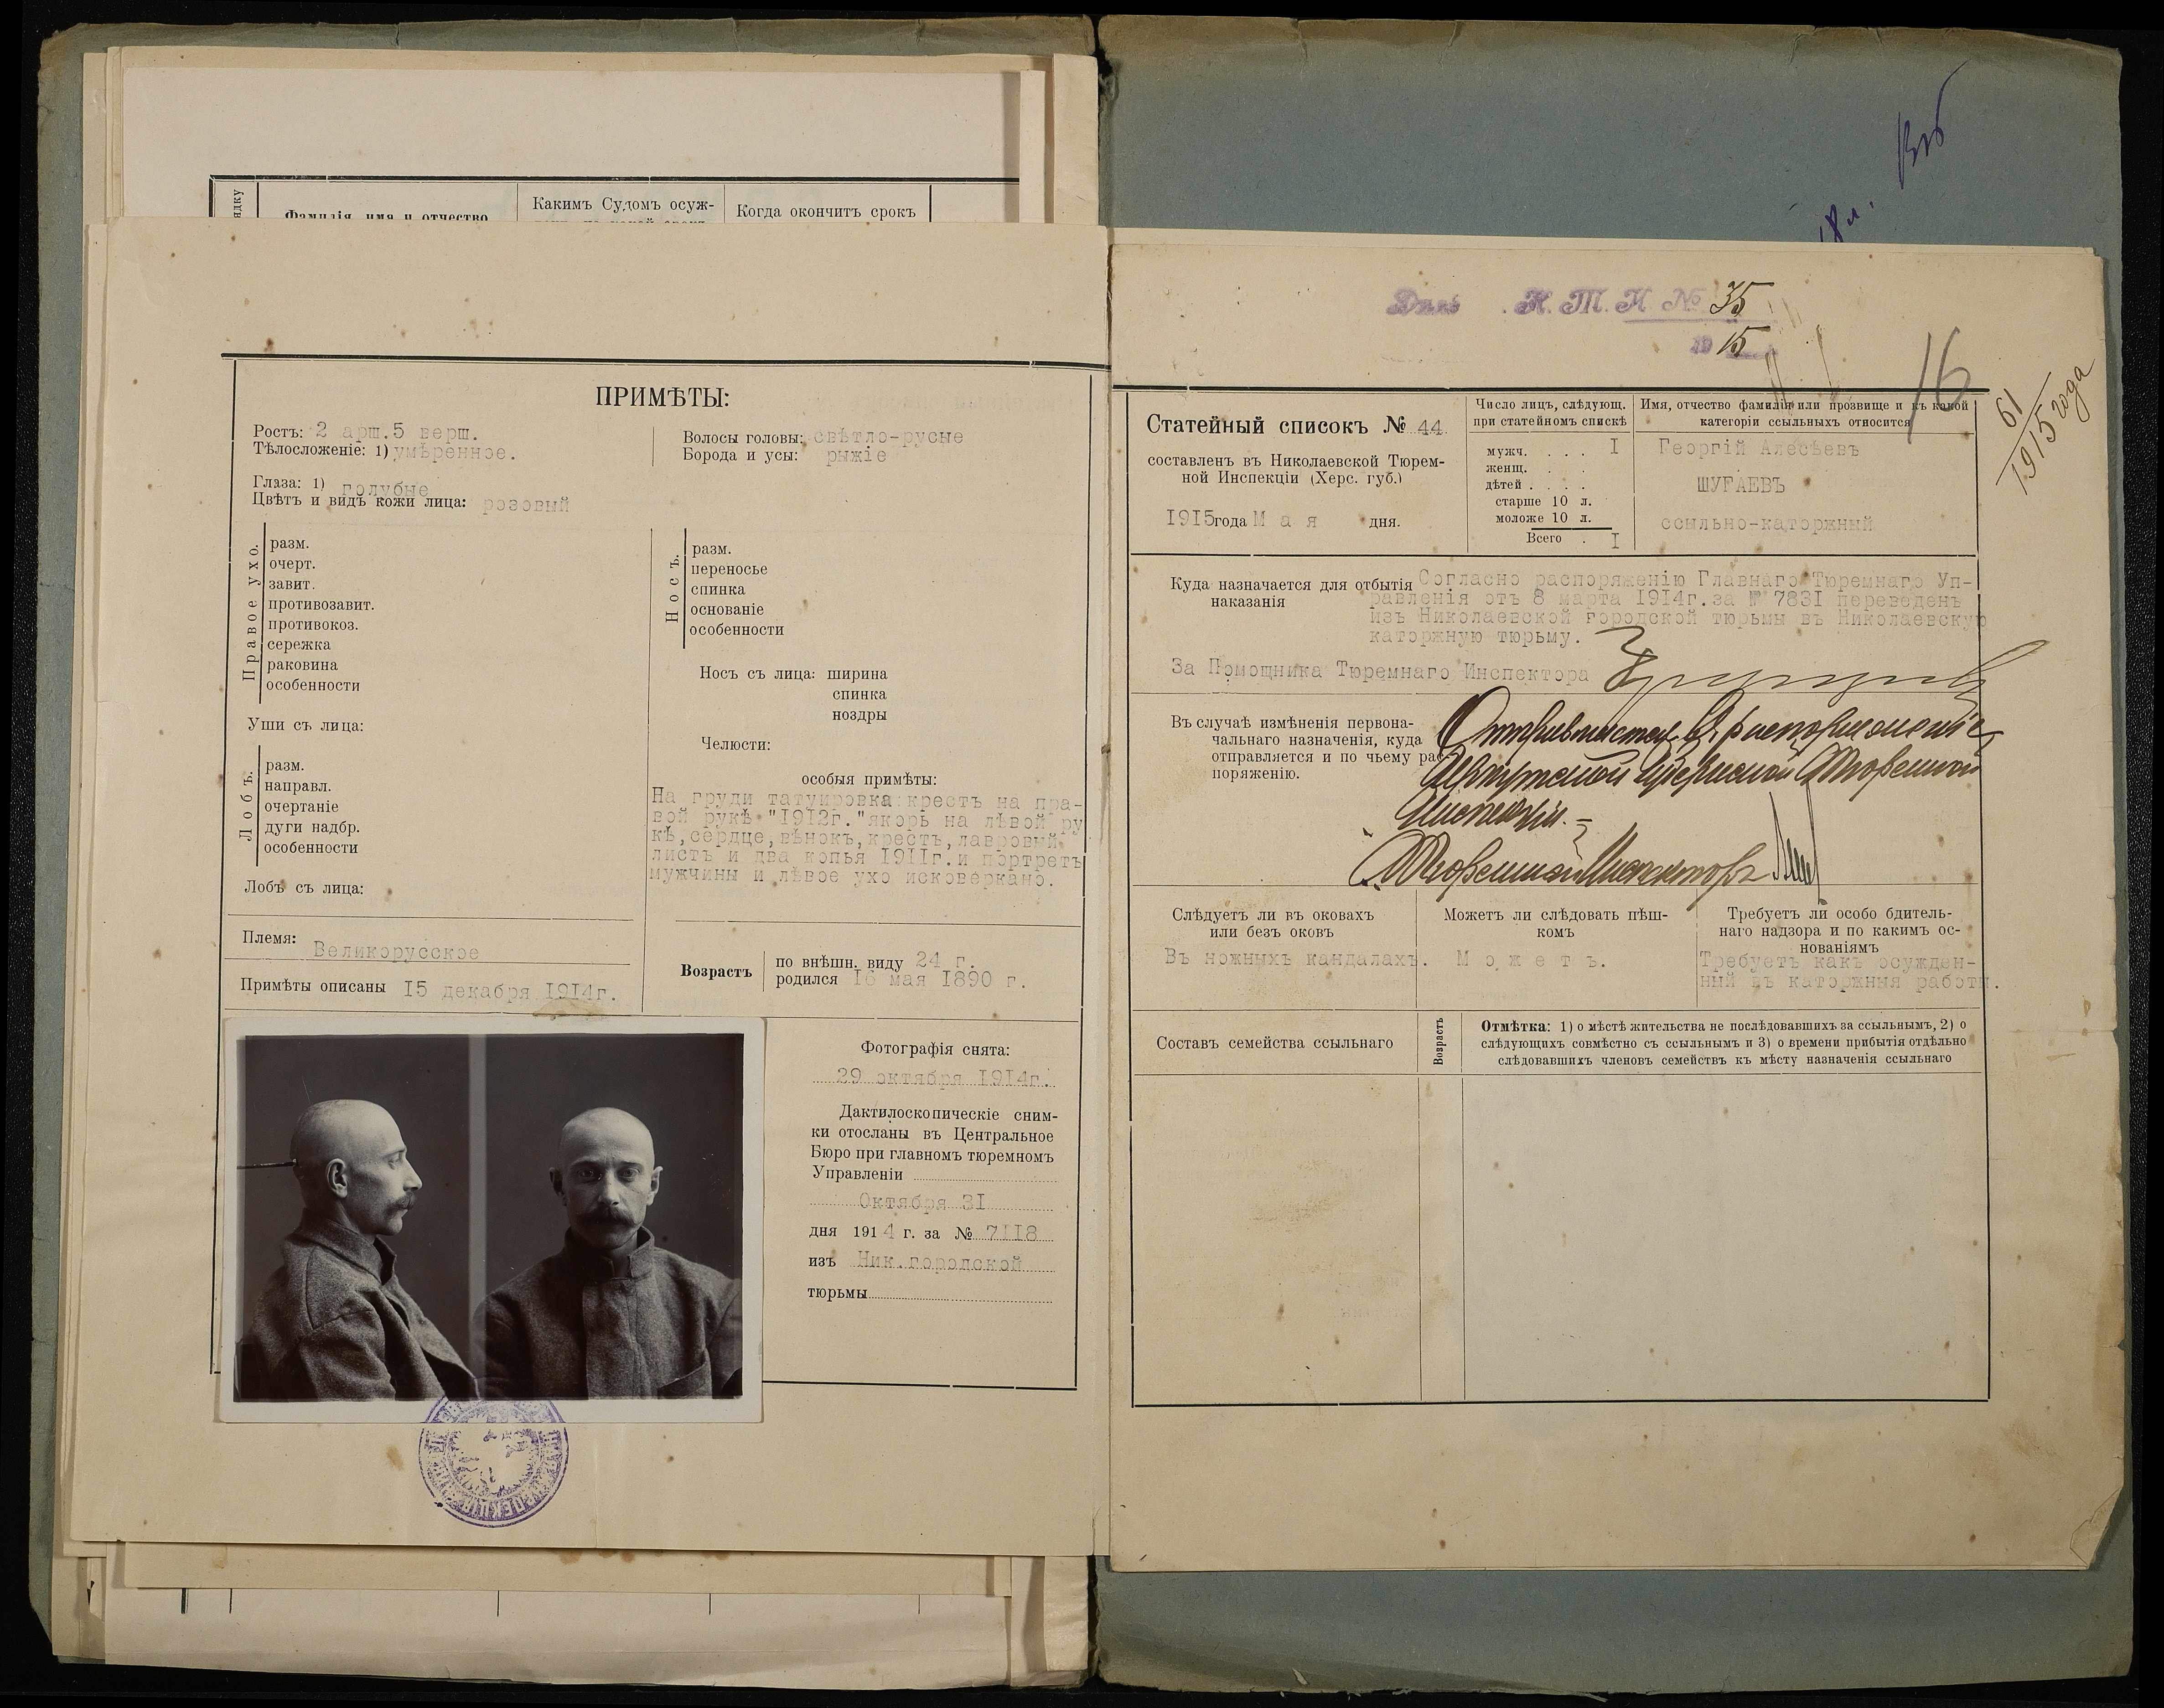 ядку
Фамилія, имя и отчество
Какимъ Судомъ осуж-
Когда окончитъ срокъ
ПРИМѢТЫ:
Ростъ: 2 арш.5 верш.
Тѣлосложеніе: 1) умѣренное.
Волосы головы: свѣтло-русые
Борода и усы: рыжіе
Глаза: 1) голубые
Цвѣтъ и видъ кожи лица: розовый
Правое ухо.
разм.
очерт.
завит.
противозавит.
противокоз.
сережка
раковина
особенности
Носъ.
разм.
переносье
спинка
основаніе
особенности
Носъ съ лица: ширина
спинка
ноздры
Уши съ лица:
Челюсти:
Лобъ.
разм.
направл.
очертаніе
дуги надбр.
особенности
Лобъ съ лица:
особыя примѣты:
На груди татуировка крестъ на пра-
вой рукѣ "1912г." якорь на лѣвой ру
кѣ, сердце, вѣнокъ, крестъ, лавровый
листъ и два копья 1911г. и портретъ
мужчины и лѣвое ухо исковеркано.
Племя: Великорусское
Примѣты описаны 15 декабря 1914г.
Возрастъ
по внѣшн. виду 24 г.
родился 16 мая 1890 г.
Фотографія снята:
29 октября 1914г.
Дактилоскопическіе сним-
ки отосланы въ Центральное
Бюро при главномъ тюремномъ
Управленіи
Октября 31
дня 1914 г. за № 7118
изъ Ник.городской
тюрьмы
18 л.
Н. Т. И. № 35
1915
16
61
1915 года
Статейный списокъ № 44
составленъ въ Николаевской Тюрем-
ной Инспекціи (Херс. губ.)
1915 года Мая дня.
Число лицъ, слѣдующ.
при статейномъ спискѣ
мужч. . . . I
женщ. . .
дѣтей . . . .
старше 10 л.
моложе 10 л.
Всего . I
Имя, отчество фамилія или прозвище и къ какой
категоріи ссыльныхъ относится
Георгій Алексѣевъ
ШУГАЕВЪ
ссыльно-каторжный
Куда назначается для отбытія
наказанія
Согласно распоряженію Главнаго Тюремнаго Уп-
равленія отъ 8 марта 1914г. за № 7831 переведенъ
изъ Николаевской городской тюрьмы въ Николаевскую
каторжную тюрьму.
За Помощника Тюремнаго Инспектора
Въ случаѣ измѣненія первона-
чальнаго назначенія, куда
отправляется и по чьему рас-
поряженію.
Отправляется въ распоряженіе
Иркутской Губернской Тюремной
Инспекціи.
Тюремный Инспекторъ
Слѣдуетъ ли въ оковахъ
или безъ оковъ
Въ ножныхъ кандалахъ.
Можетъ ли слѣдовать пѣш-
комъ
Можетъ.
Требуетъ ли особо бдитель-
наго надзора и по какимъ ос-
нованіямъ
Требуетъ какъ осужден-
ный въ каторжныя работы.
Составъ семейства ссыльнаго
Возрастъ
Отмѣтка: 1) о мѣстѣ жительства не послѣдовавшихъ за ссыльнымъ, 2) о
слѣдующихъ совмѣстно съ ссыльнымъ и 3) о времени прибытія отдѣльно
слѣдовавшихъ членовъ семействъ къ мѣсту назначенія ссыльнаго